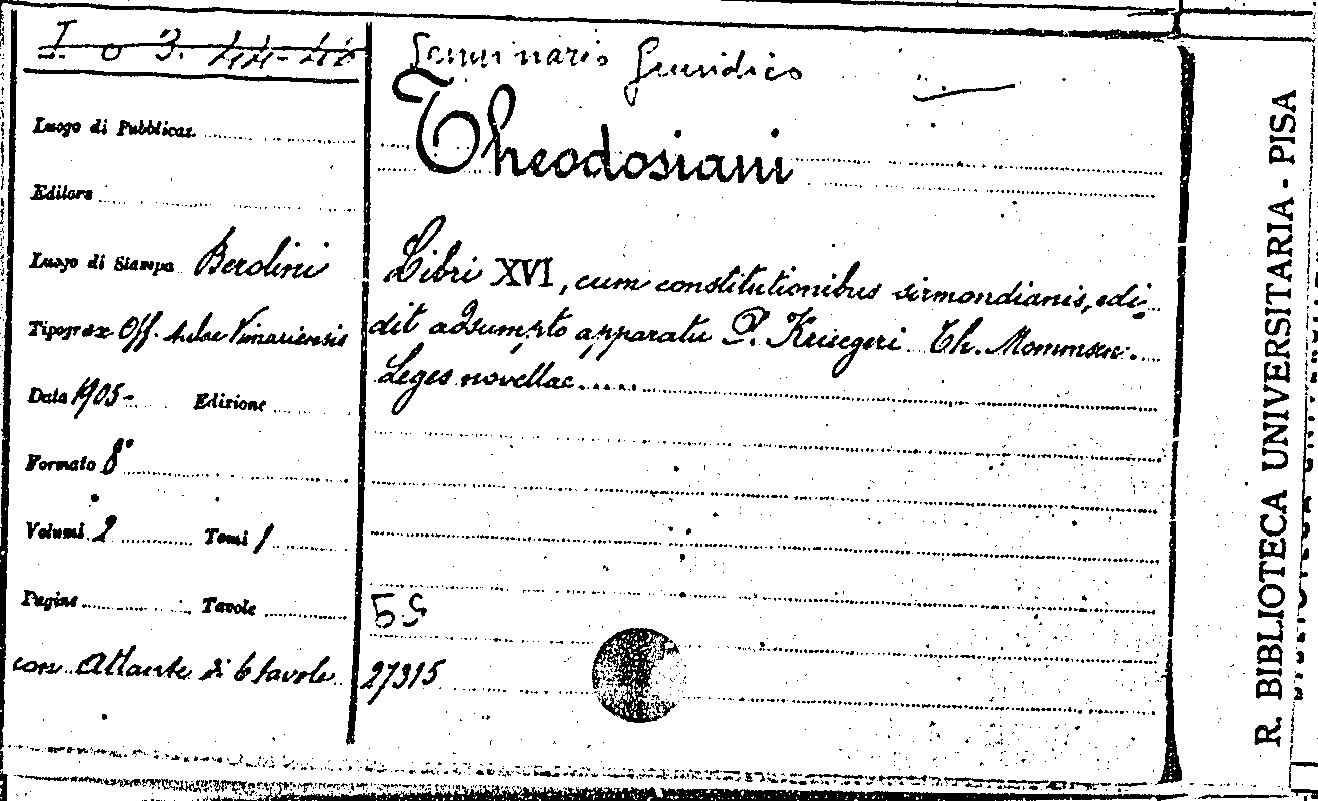 I. o 3. 44-46
Seminario Giuridico
Theodosiani
Luogo di Pubblicaz.
Editore
Luogo di Stampa Berolini
Libri XVI, cum constitutionibus sirmondianis, edi-
Tipograf. Off. Aulae Vimariensis
dit adsumpto apparatu P. Kruegeri Th. Mommsen.
Leges novellae.....
Data 1905- Edizione
Formato 8°
Volumi 2 Tomi 1
Pagine Tavole
con Atlante di 6 tavole
27315
R. BIBLIOTECA UNIVERSITARIA - PISA